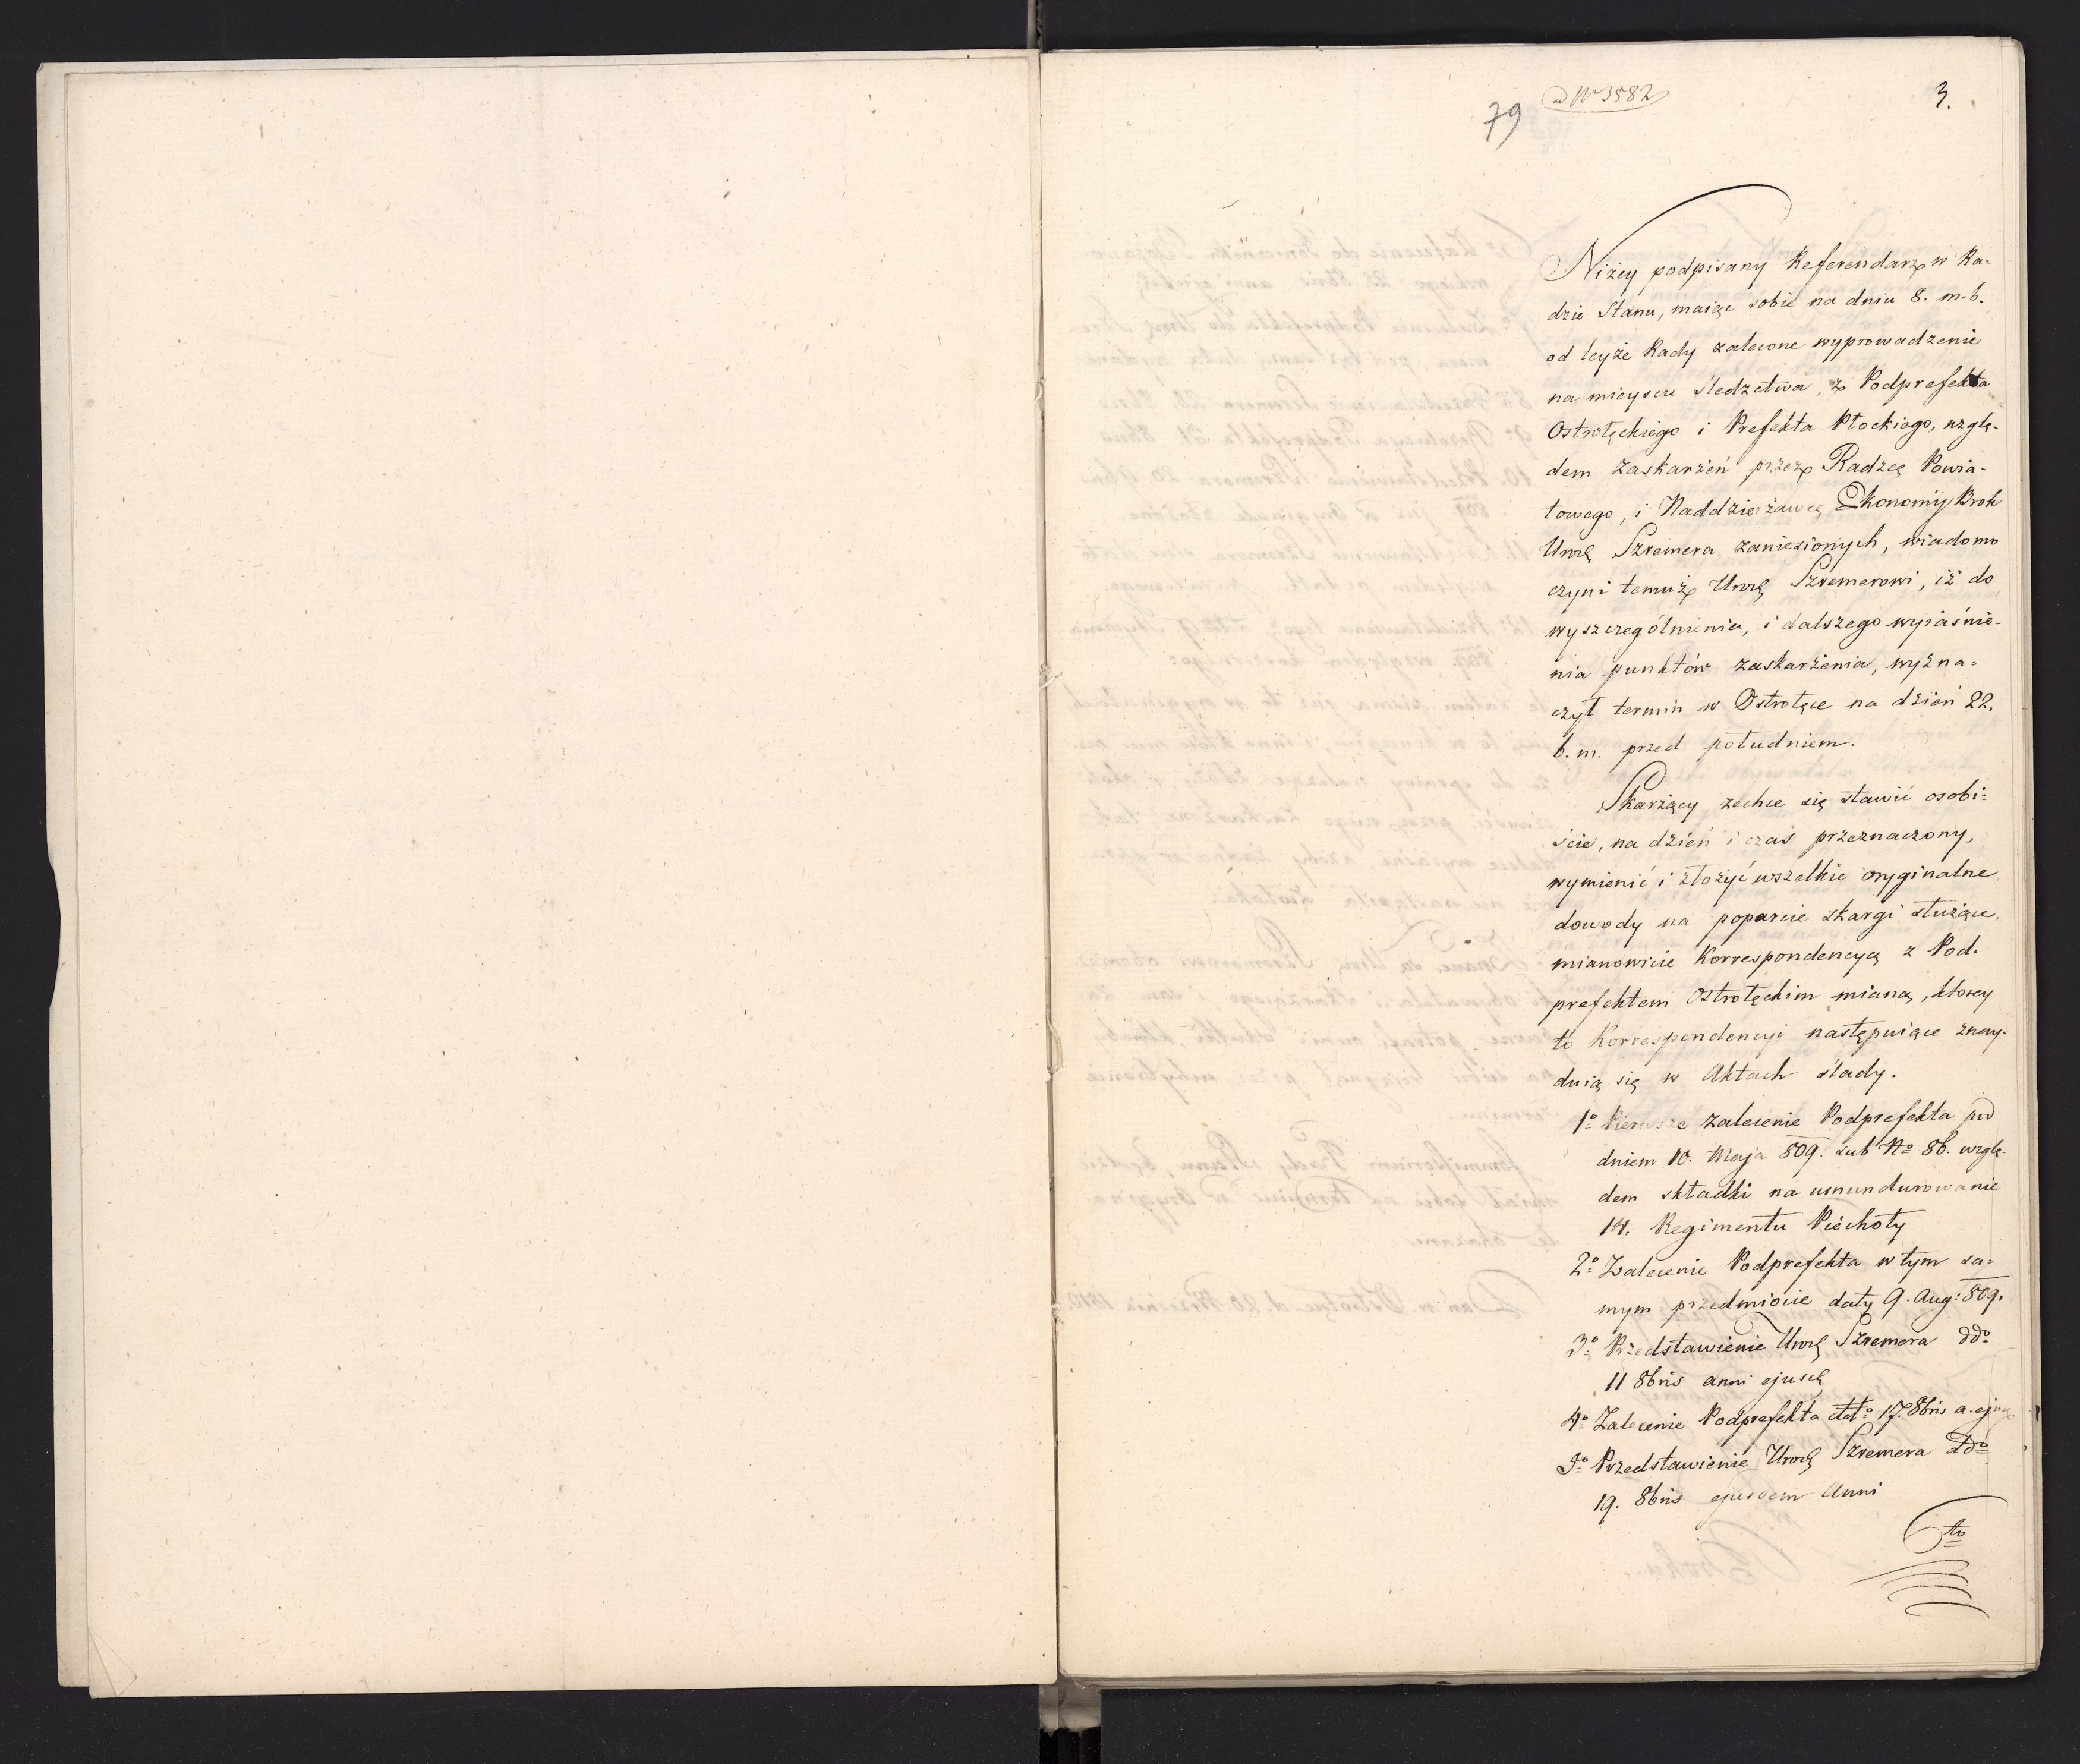 ad Nro 3582
79
3.
Niżey podpisany Referendarz w Ra-
dzie Stanu, maiąc sobie na dniu 8. m. b.
od teyże Rady zalecone wyprowadzenie
na mieyscu śledztwa, z Podprefekta
Ostrołęckiego i Prefekta Płockiego, wzglę-
dem zaskarżeń przez Radzcę Powia-
towego, i Naddzierżawcę Ekonomij Brok
Urogę Szremera zaniesionych, wiadomo
czyni temuż Szremerowi, iż do
wyszczególnienia, i dalszego wyiaśnie-
nia punktów zaskarżenia, wyzna-
czył termin w Ostrołęce na dzień 22.
b. m. przed południem.
Skarżący zechce się stawić osobi-
ście, na dzień i czas przeznaczony,
wymienić i złożyć wszelkie oryginalne
dowody na poparcie skargi służące,
mianowicie Korrespondencyą z Pod-
prefektem Ostrołęckim mianą, ktorey
to Korrespondencyi następuiące znay-
duią się w Aktach ślady.
1o Pierwsze zalecenie Podprefekta pod
dniem 10. Maja 809. sub No 86. wzglę-
dem składki na umundurowanie
14. Regimentu Piechoty
2o Zalecenie Podprefekta w tym sa-
mym przedmiocie daty 9. Aug: 809.
3o Przedstawienie Szremera ddo
11 8bris anni ejusd
4o Zalecenie Podprefekta dtto 17. 8bris a. ejusd
5o Przedstawienie Szremera ddo
19. 8bris ejusdem Anni
6to